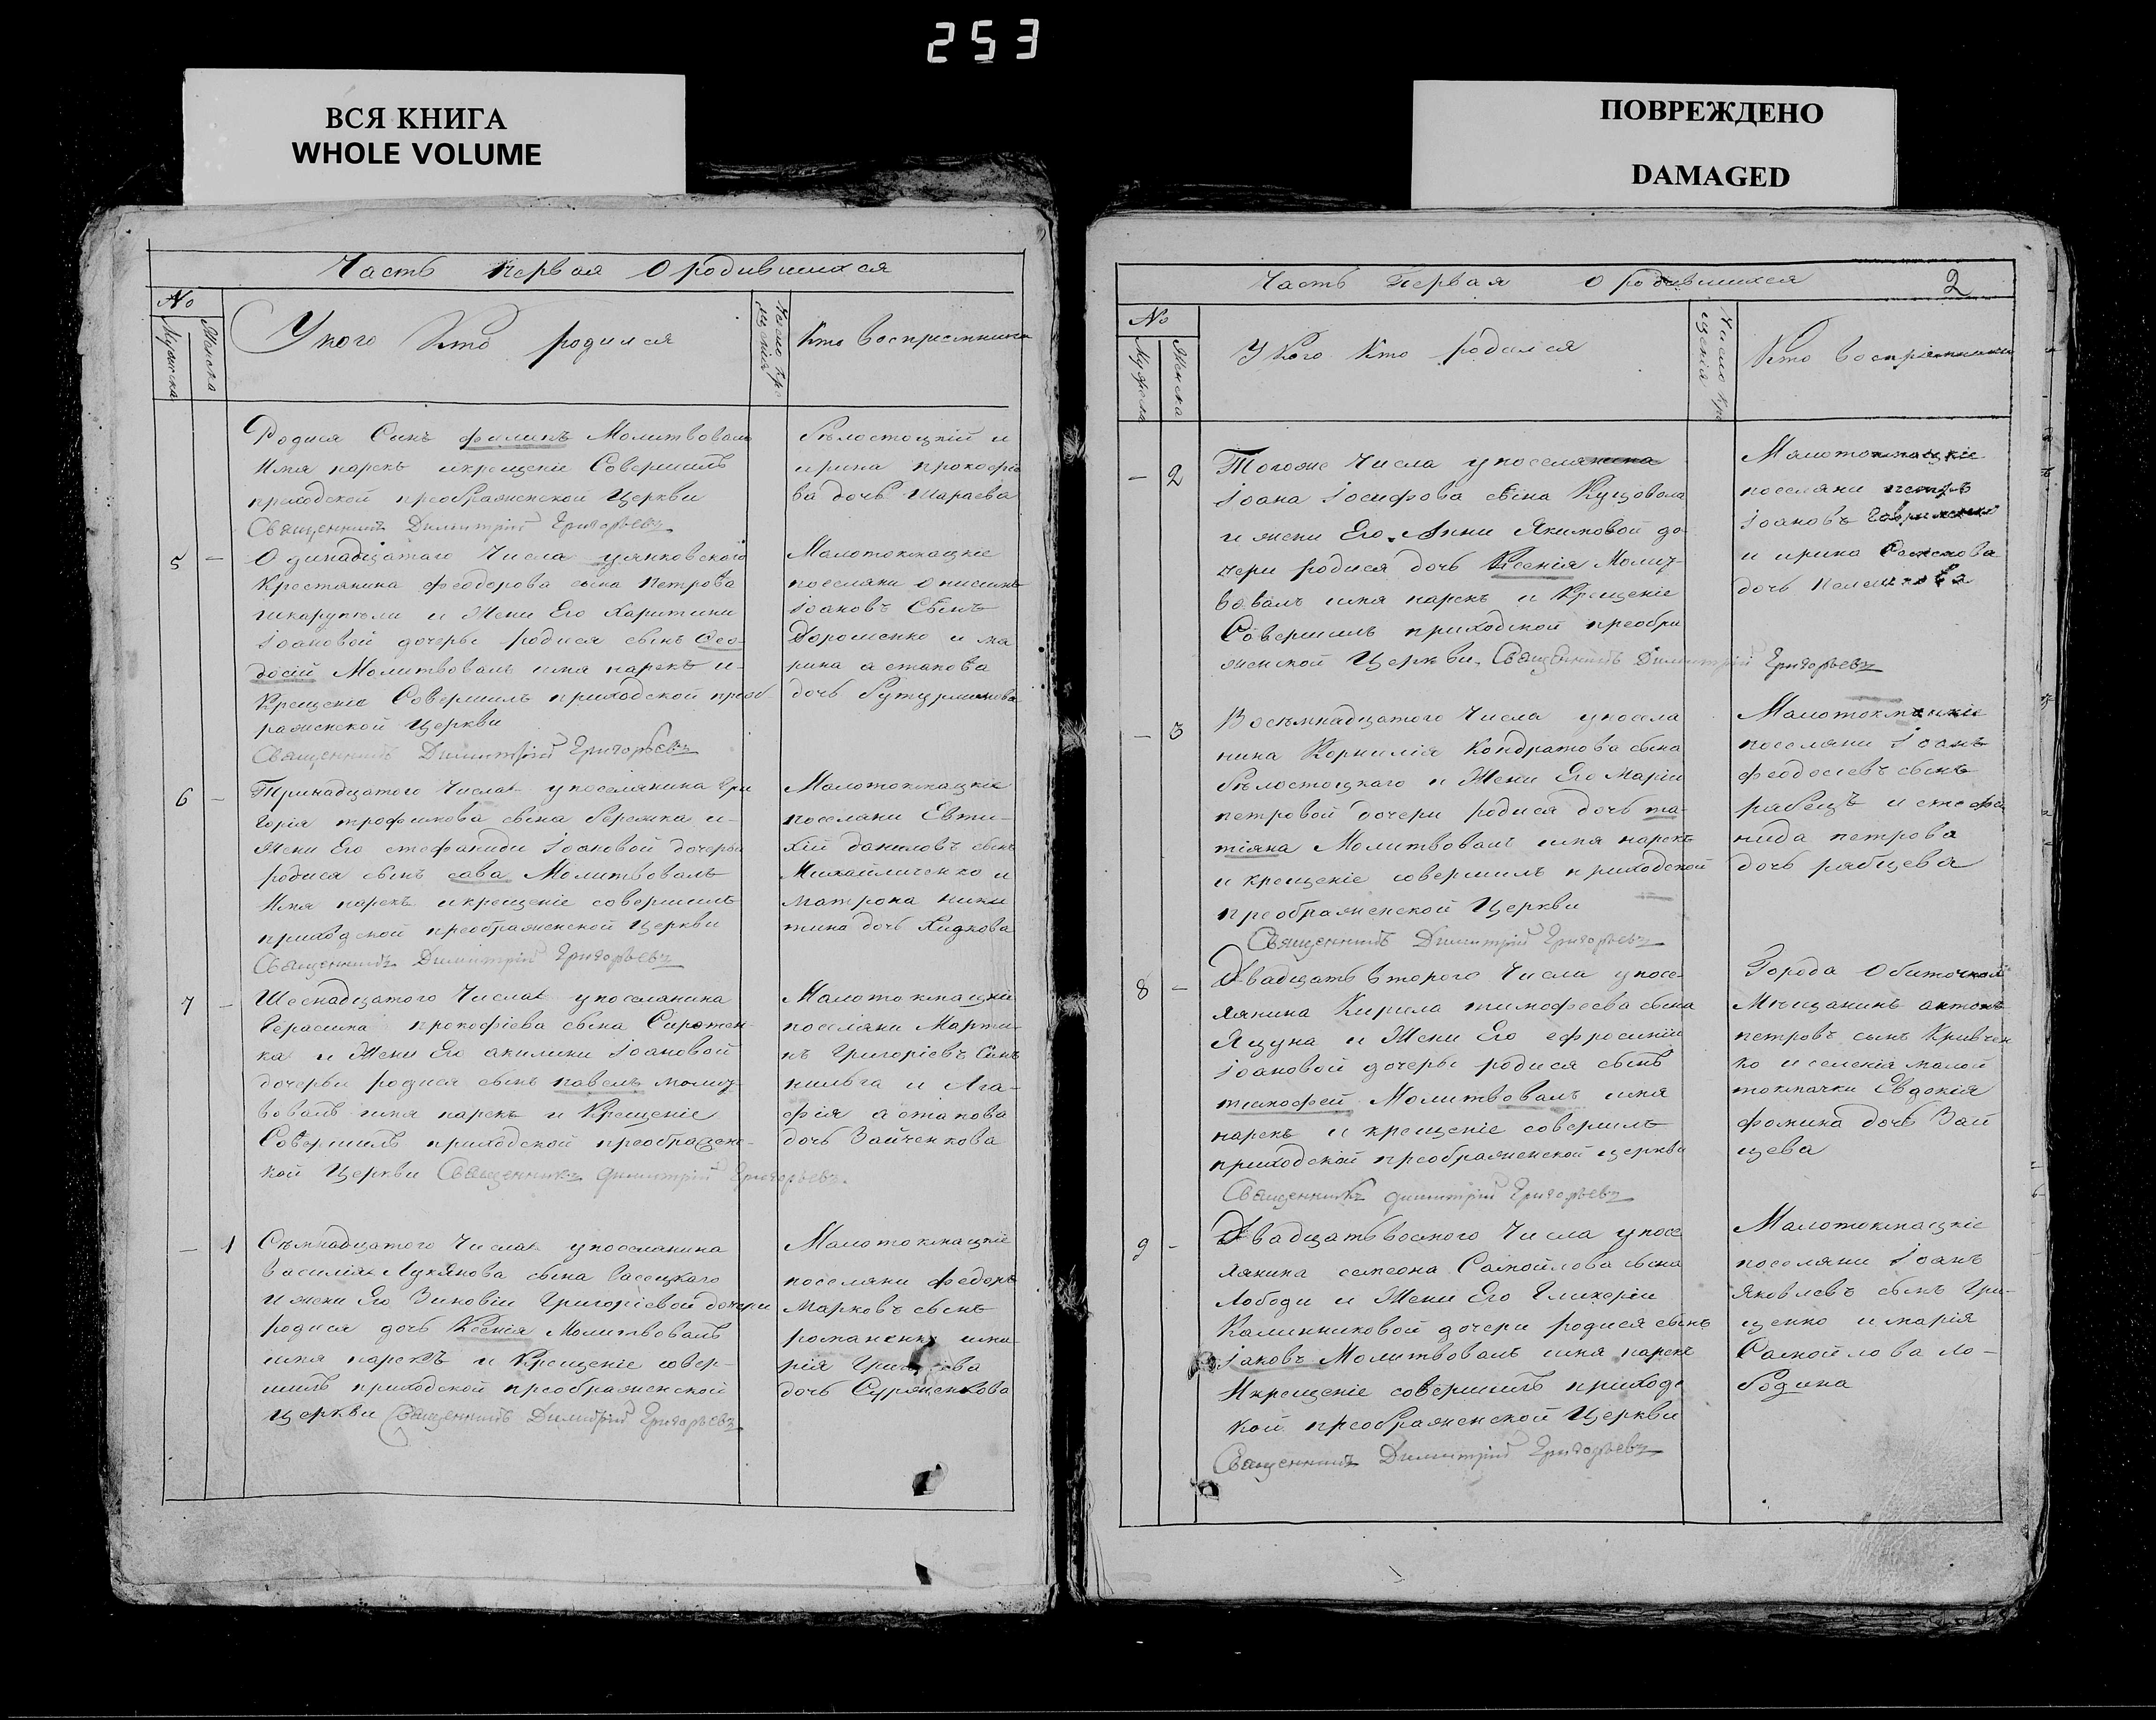 253
ВСЯ КНИГА
WHOLE VOLUME
ПОВРЕЖДЕНО
DAMAGED
Часть первая О родившихся
№
Мужеска
Женска
У кого Кто родился
Число кре
щенія
Кто восприемники
Родися Синъ филипъ Молитвовалъ
Имя нарекъ икрещеніе Совершилъ
приходской преображенской Церкви
Священникъ Димитрій Григорьевъ
Бѣлостоцкій и
ирина прокофіе
ва дочь Шараева
5 -
Одинадцатаго Числа уянковскаго
Крестянина феодорова сына Петрова
шкарупѣли и Жени Его Харитини
Іоановой дочеры родися сынъ Ѳео-
досій Молитвовалъ имя нарекъ и-
Крещеніе Совершилъ приходской преоб-
раженской Церкви
Священникъ Димитрій Григорьевъ
Малотокмацкіе
поселяни Онисимъ
Іоановъ Сынъ
Дорошенко и ма
рина астапова
дочь Бутурлимова
6 -
Тринадцатого Числа упоселянина Гри
горія трофимова сына бережка и-
Жени Его стефаниди Іоановой дочеры
родися сынъ сава Молитвовалъ
Имя нарекъ икрещеніе совершилъ
приходской преображенской Церкви
Священникъ Димитрій Григорьевъ
Малотокмацкіе
поселяни Евти-
хій даниловъ сынъ
Михайличенко и
матрона ники
тина дочь Хидкова
7 -
Шеснадцатого Числа упоселянина
Герасима прокофіева сына Сиротен-
ка и Жени Его акилини Іоановой
дочеры родися сынъ павелъ молит-
вовалъ имя нарекъ и Крещеніе
Совершилъ приходской преображенс-
кой Церкви Священникъ Димитрій Григорьевъ
Малотокмацкіе
поселяни Марти-
нъ Григоріевъ Синъ
пильга и Ага-
фія астапова
дочь Зайченкова
- 1
Съмнадцатого Числа упоселянина
василія Лукянова сына Васецкаго
и жени Его Зиновіи Григоріевой дочери
родися дочь Ксенія Молитвовалъ
имя нарекъ и Крещеніе совер-
шилъ приходской преображенской
Церкви Священникъ Димитрій Григорьевъ
Малотокмацкіе
поселяни федоръ
Марковъ сынъ
романенко има-
рія
дочь Сурженкова
Часть Первая О родившихся
2
№
Мужеска
Женска
У Кого Кто родился
Число кре
щенія
Кто воспріемники
- 2
Тогоже Числа упоселянина
Іоана Іосифова сына Куцовола
и жени Его Анни Якимовой до-
чери родися дочь Ксенія Молит-
вовалъ имя нарекъ и Крещеніе
Совершилъ приходской преобра
женской Церкви. Священникъ Димитрій Григорьевъ
Малотокмацкіе
поселяни петръ
Іоановъ
и ирина
дочь
- 3
Восѣмнадцатого Числа упоселя
нина Корнилія Кондратова сына
Бѣлостоцкаго и Жени Его Маріи
петровой дочери родися дочь та-
тіяна Молитвовалъ имя нарекъ
и крещеніе совершилъ приходской
преображенской Церкви
Священникъ Димитрій Григорьевъ
Малотокмацкіе
поселяни Іоанъ
феодосіевъ сынъ
рябецъ и стефа
нида петрова
дочь рябцева
8 -
Двадцать второго Числа упосе-
лянина Кирила тимофеева сына
Яцуна и Жени Его ефросиніи
Іоановой дочеры родися сынъ
тимофей Молитвовалъ имя
нарекъ и крещеніе совершилъ
приходской преображенской церкви
Священникъ димитрій Григорьевъ
Города Обиточнаго
Мѣщанинъ антонъ
петровъ сынъ Кривчен
ко и селенія малой
токмачки Евдокія
фомина дочь Зай
цева
9 -
Двадцатьвосмого Числа упосе
лянина семеона Самойлова сына
Лободи и Жени Его Гликеріи
Калинниковой дочери родися сынъ
Іаковъ Молитвовалъ имя нарекъ
Икрещеніе совершилъ приходс
кой преображенской Церкви
Священникъ Димитрій Григорьевъ
Малотокмацкіе
поселяни Іоанъ
Яковлевъ сынъ Гри-
ценко имарія
Самойлова ло-
бодина